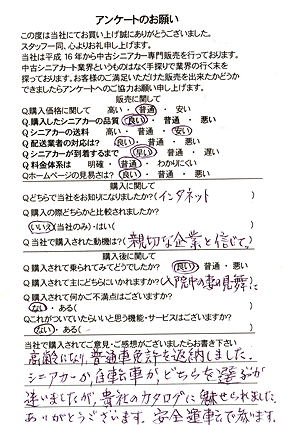 アンケートのお願い
この度は当社にてお買い上げ誠にありがとうございました。
スタッフ一同、心よりお礼申し上げます。
当社は平成16年から中古シニアカー専門販売を行っております。
中古シニアカート業界というものはなく手探りで業界の行く末を
探っております。お客様のご満足いただけた販売を出来たかどうか
できましたらアンケートへのご協力お願い申し上げます。
販売に関して
Q.購入価格に関して 高い・普通・安い
Q.購入したシニアカーの品質 良い・普通・悪い
Q シニアカーの送料 高い・普通・安い
Q 配送業者の対応は? 良い・普通・悪い
Q シニアカーが到着するまで 早い・普通・遅い
Q 料金体系は 明確・普通・わかりにくい
Qホームページの見易さは? 良い・普通・悪い
購入に関して
Qどちらで当社をお知りになりましたか?(インタネット)
Q 購入の際どちらかと比較されましたか?
いいえ(当社のみ)・はい( )
Q 当社で購入された動機は?(親切な企業と信じて)
購入後に関して
Q 購入されて乗られてみてどうでしたか? 良い・普通・悪い
Q 購入されて主にどちらにいかれますか?(入院中の妻の見舞に
Q 購入されて何かご不満点はございますか?
ない・ある( )
Qこれがついていたらいいと思う機能・サービスはございますか?
ない・ある( )
当社で購入されてご意見・ご感想がございましたらお書き下さい
高齢になり、普通車免許を返納しました。
シニアカーか、自転車か、どちらを選ぶか
迷いましたが、貴社のカタログに魅せられました。
ありがとうございます。安全運転で参ります。